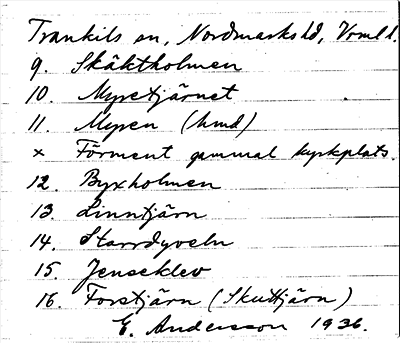 Trankils sn, Nordmarks hd, Vrml l.
9. Skäktholmen
10. Myretjärnet
11. Myren (hmd)
x Förment gammal kyrkplats.
12. Byxholmen
13. Linntjärn
14. Starrdyveln
15. Jenseklev
16. Forstjärn (Skuttjärn)
E. Andersson 1936.